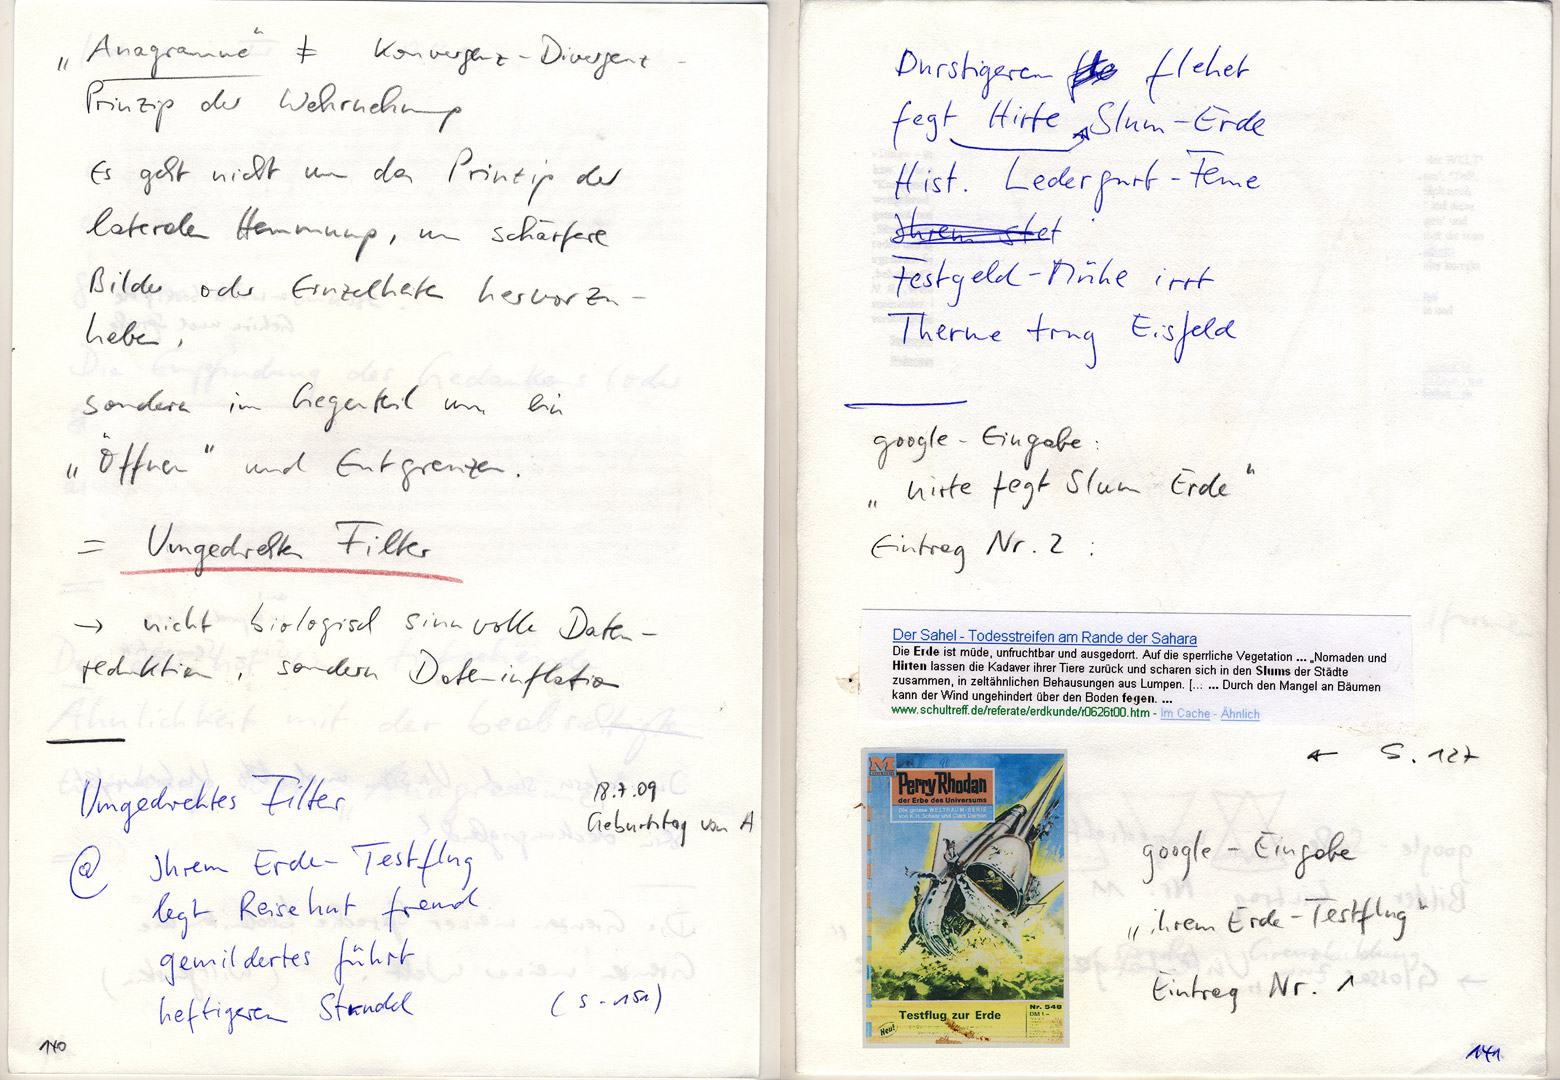 „Anagramme“ ≠ Konvergenz-Divergenz-
Prinzip der Wahrnehmung
Es geht nicht um das Prinzip der
lateralen Hemmung, um schärfere
Bilder oder Einzelheiten hervorzu-
heben,
sondern im Gegenteil um ein
„Öffnen“ und Entgrenzen.
= Umgedrehter Filter
→ nicht biologisch sinnvolle Daten-
reduktion, sondern Dateninflation
Umgedrehtes Filter
18.7.09
Geburtstag von A
@ Ihrem Erde-Testflug
legt Reisehut fremd
gemildertes führt
heftigerem Strudel
(S. 151)
140
Durstigerem flehet
fegt Hirte Slum-Erde
Hist. Ledergurt-Feme
Ihrem stet
Festgeld-Mühe irrt
Therme trug Eisfeld
google-Eingabe:
„hirte fegt Slum Erde“
Eintrag Nr. 2:
Der Sahel - Todesstreifen am Rande der Sahara
Die Erde ist müde, unfruchtbar und ausgedorrt. Auf die sperrliche Vegetation ... „Nomaden und
Hirten lassen die Kadaver ihrer Tiere zurück und scharen sich in den Slums der Städte
zusammen, in zeltähnlichen Behausungen aus Lumpen. [... ... Durch den Mangel an Bäumen
kann der Wind ungehindert über den Boden fegen. ...
www.schultreff.de/referate/erdkunde/r0626t00.htm - Im Cache - Ähnlich
← S. 127
M
Perry Rhodan
der Erbe des Universums
Die grosse WELTRAUM-SERIE
von K.H. Scheer und Clark Darlton
Nr. 548
DM 1.–
Testflug zur Erde
Neu!
google-Eingabe
„ihrem Erde-Testflug“
Eintrag Nr. 1
141